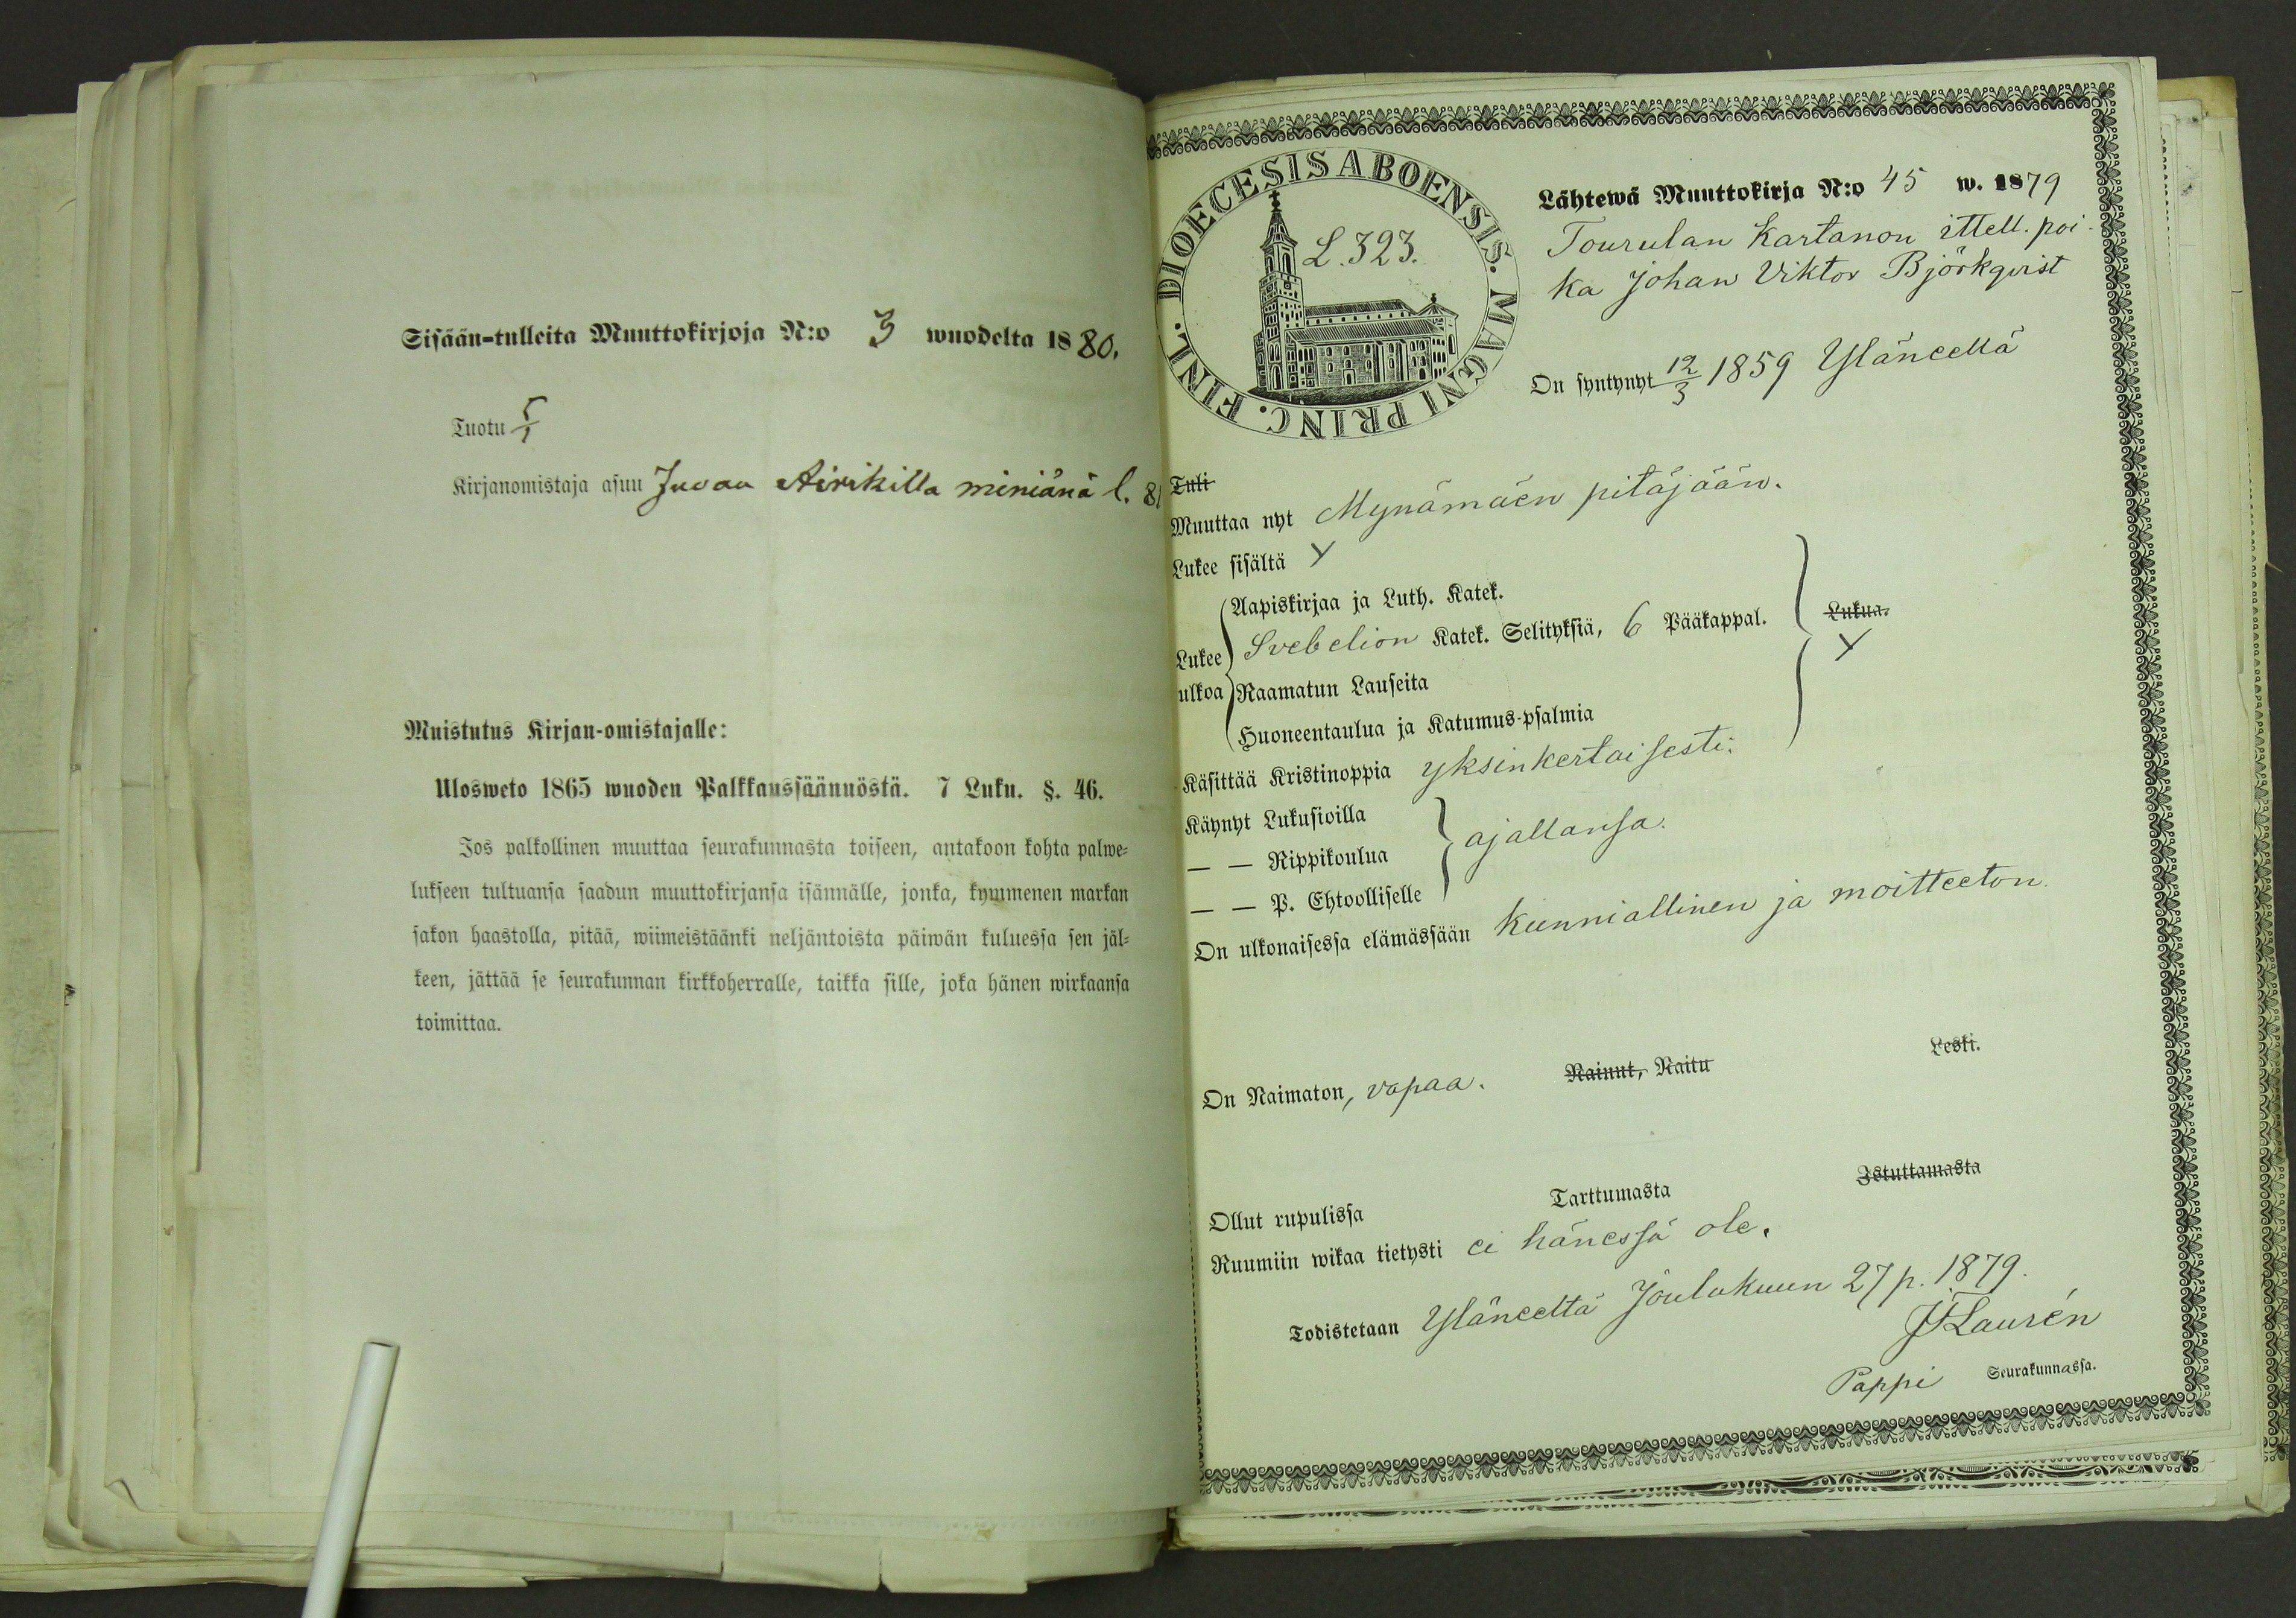 Sisään-tulleita Muuttokirjoja N:o 3 wuodelta 1880.
Tuotu 5/1
Kirjanomistaja asuu Juvan Airikilla miniänä l. 81
Muistutus Kirjan-omistajalle:
Ulosweto 1865 wuoden Palkkaussäännöstä. 7 Luku. §. 46.
Jos palkollinen muuttaa seurakunnasta toiseen, antakoon kohta palwe=
lukseen tultuansa saadun muuttokirjansa isännälle, jonka, kymmenen markan
sakon haastolla, pitää, wiimeistäänki neljäntoista päiwän kuluessa sen jäl=
keen, jättää se seurakunnan kirkkoherralle, taikka sille, joka hänen wirkaansa
toimittaa.
DIOECESIS ABOENSIS. MAGNI PRINC. FINL.
L. 323.
Lähtewä Muuttokirja N:o 45 w. 1879
Tourulan Kartanon ittell. poi-
ka Johan Viktor Björkqvist
On syntynyt 12/3 1859 Yläneellä
Tuli
Muuttaa nyt Mynämäen pitäjään.
Lukee sisältä Y
Lukee ulkoa
Aapiskirjaa ja Luth. Katek.
Svebelion Katek. Selityksiä, 6 Pääkappal.
Raamatun Lauseita
Huoneentaulua ja Katumus-psalmia
Lukua.
Y
Käsittää Kristinoppia yksinkertaisesti.
Käynyt Lukusioilla
— — Rippikoulua ajallansa.
— — P. Ehtoolliselle
On ulkonaisessa elämässään kunniallinen ja moitteeton.
On Naimaton, vapaa. Nainut, Naitu Leski.
Ollut rupulissa Tarttumasta Istuttamasta
Ruumiin wikaa tietysti ei hänessä ole.
Todistetaan Yläneeltä Joulukuun 27 p. 1879.
JFLaurén
Pappi Seurakunnassa.